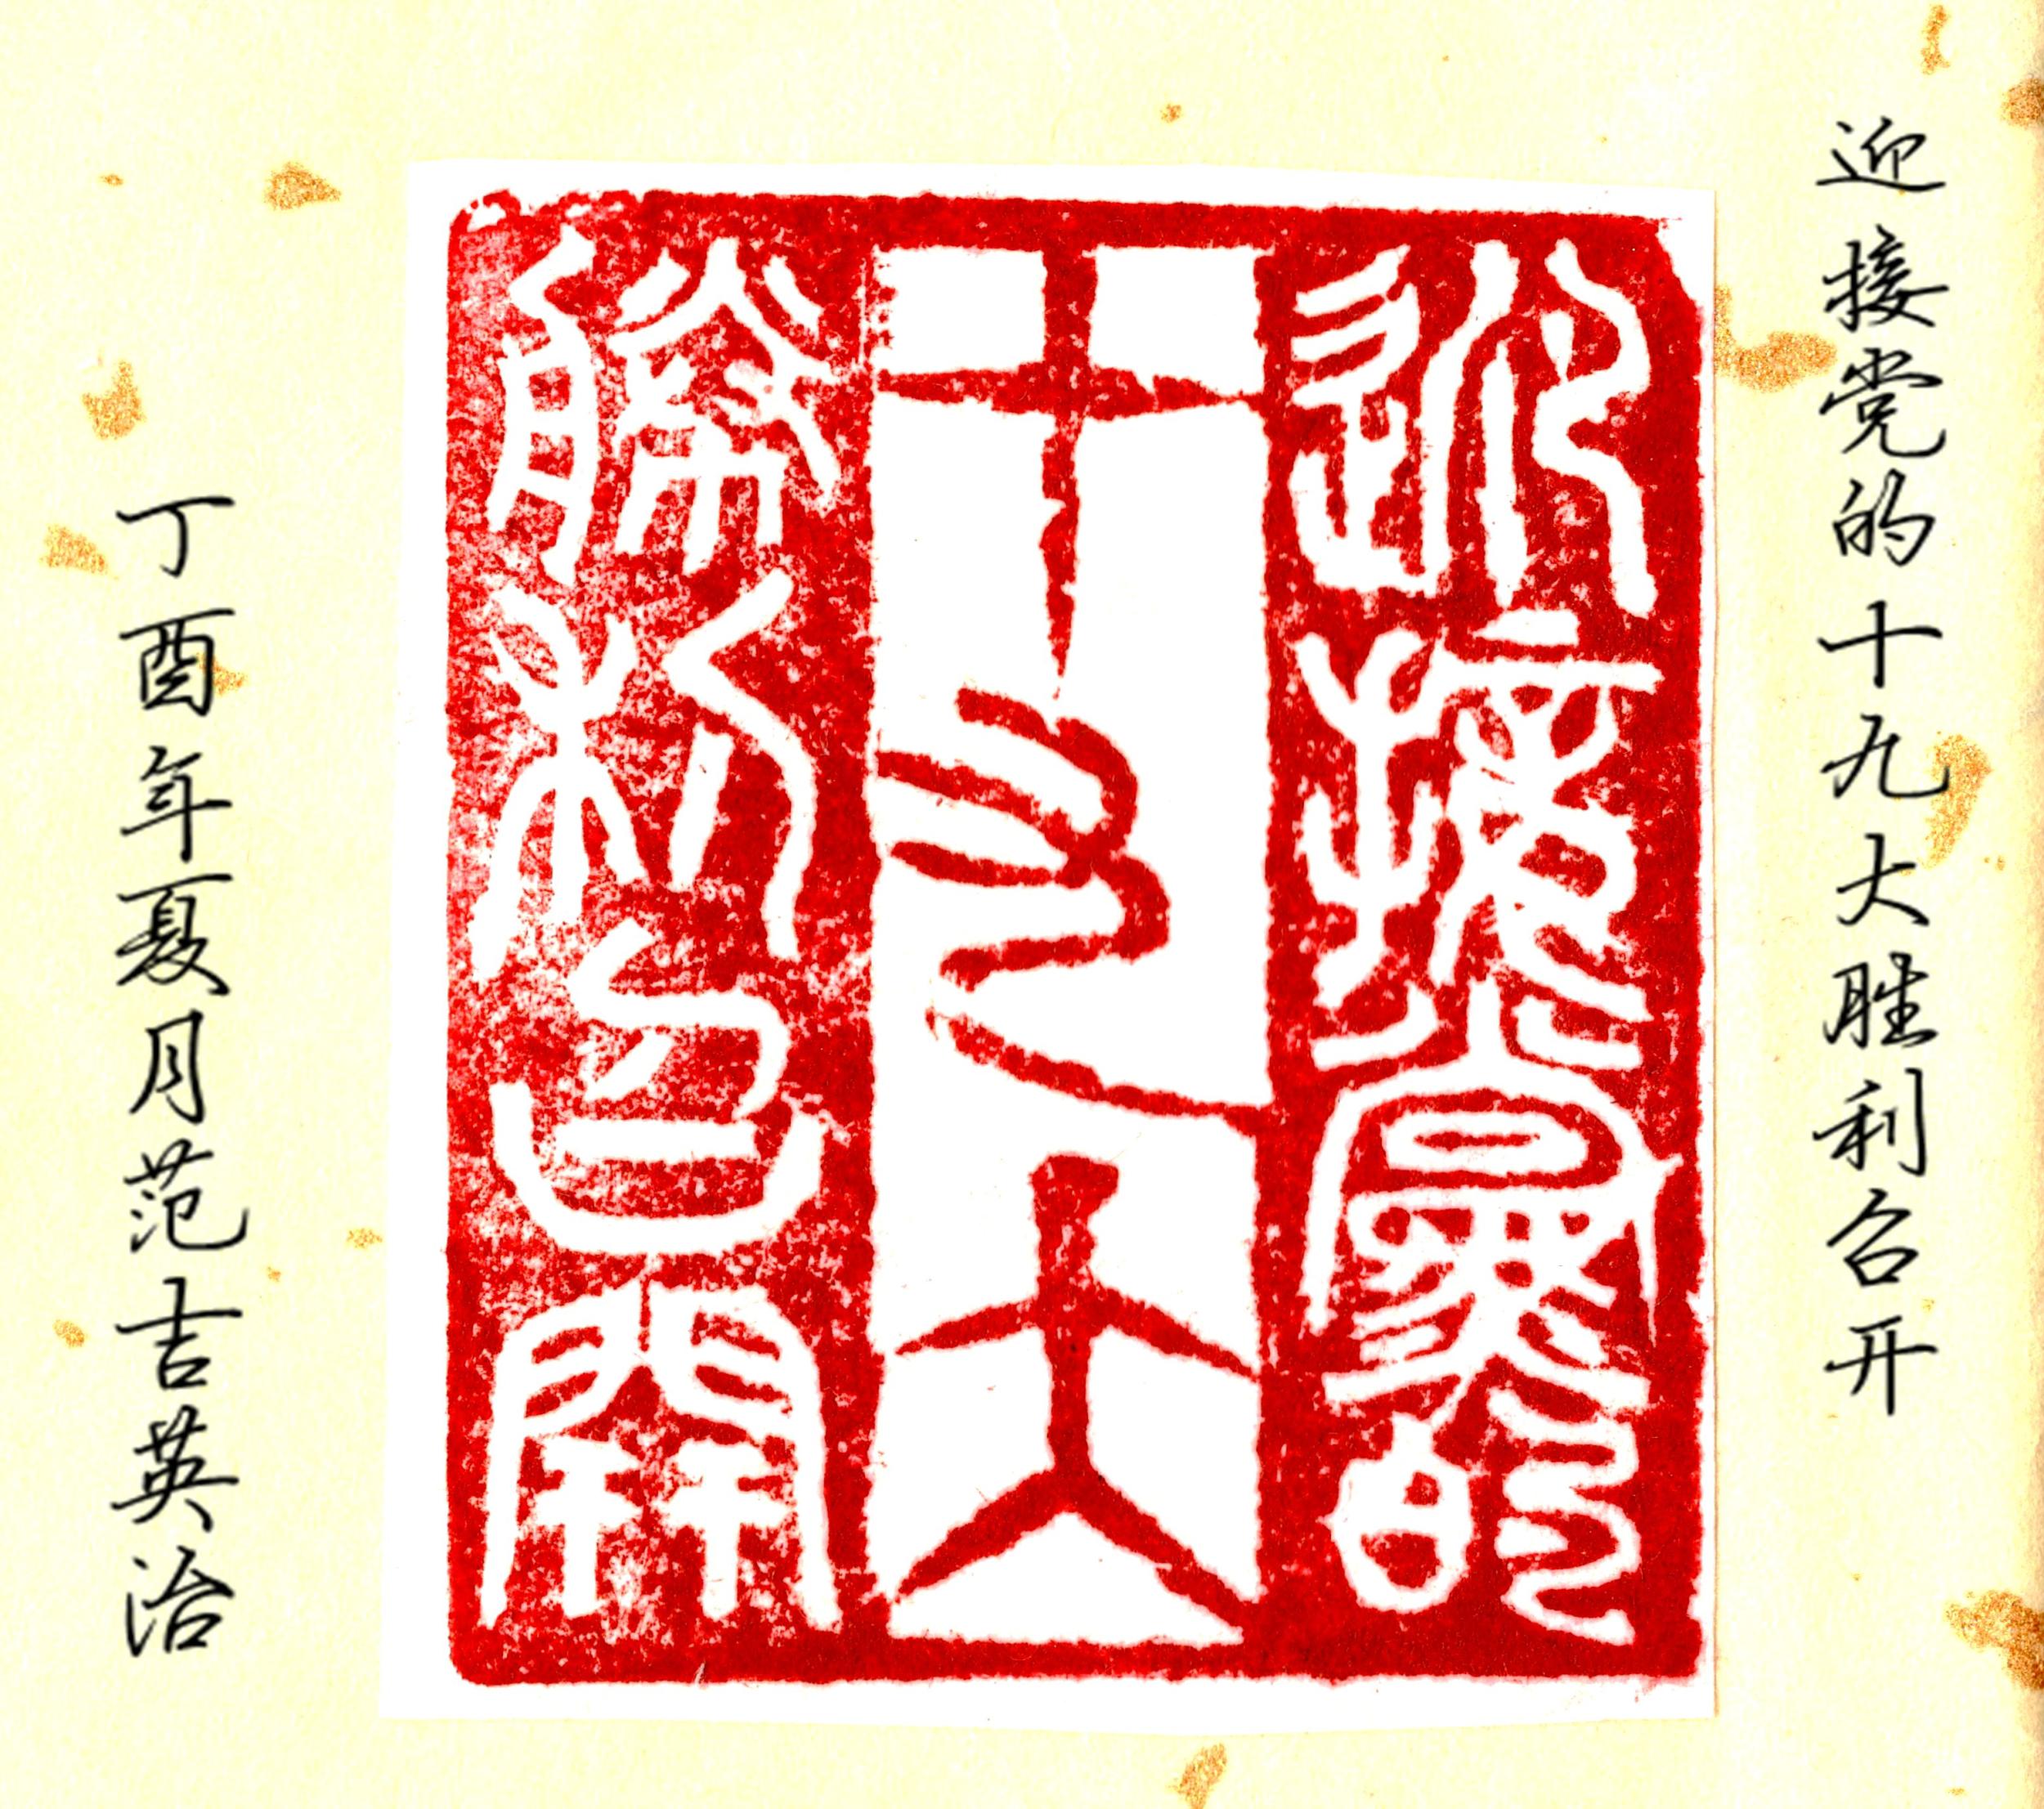 迎接党的十九大胜利召开
迎接黨的
十九大
勝利召開
丁酉年夏月范吉英治